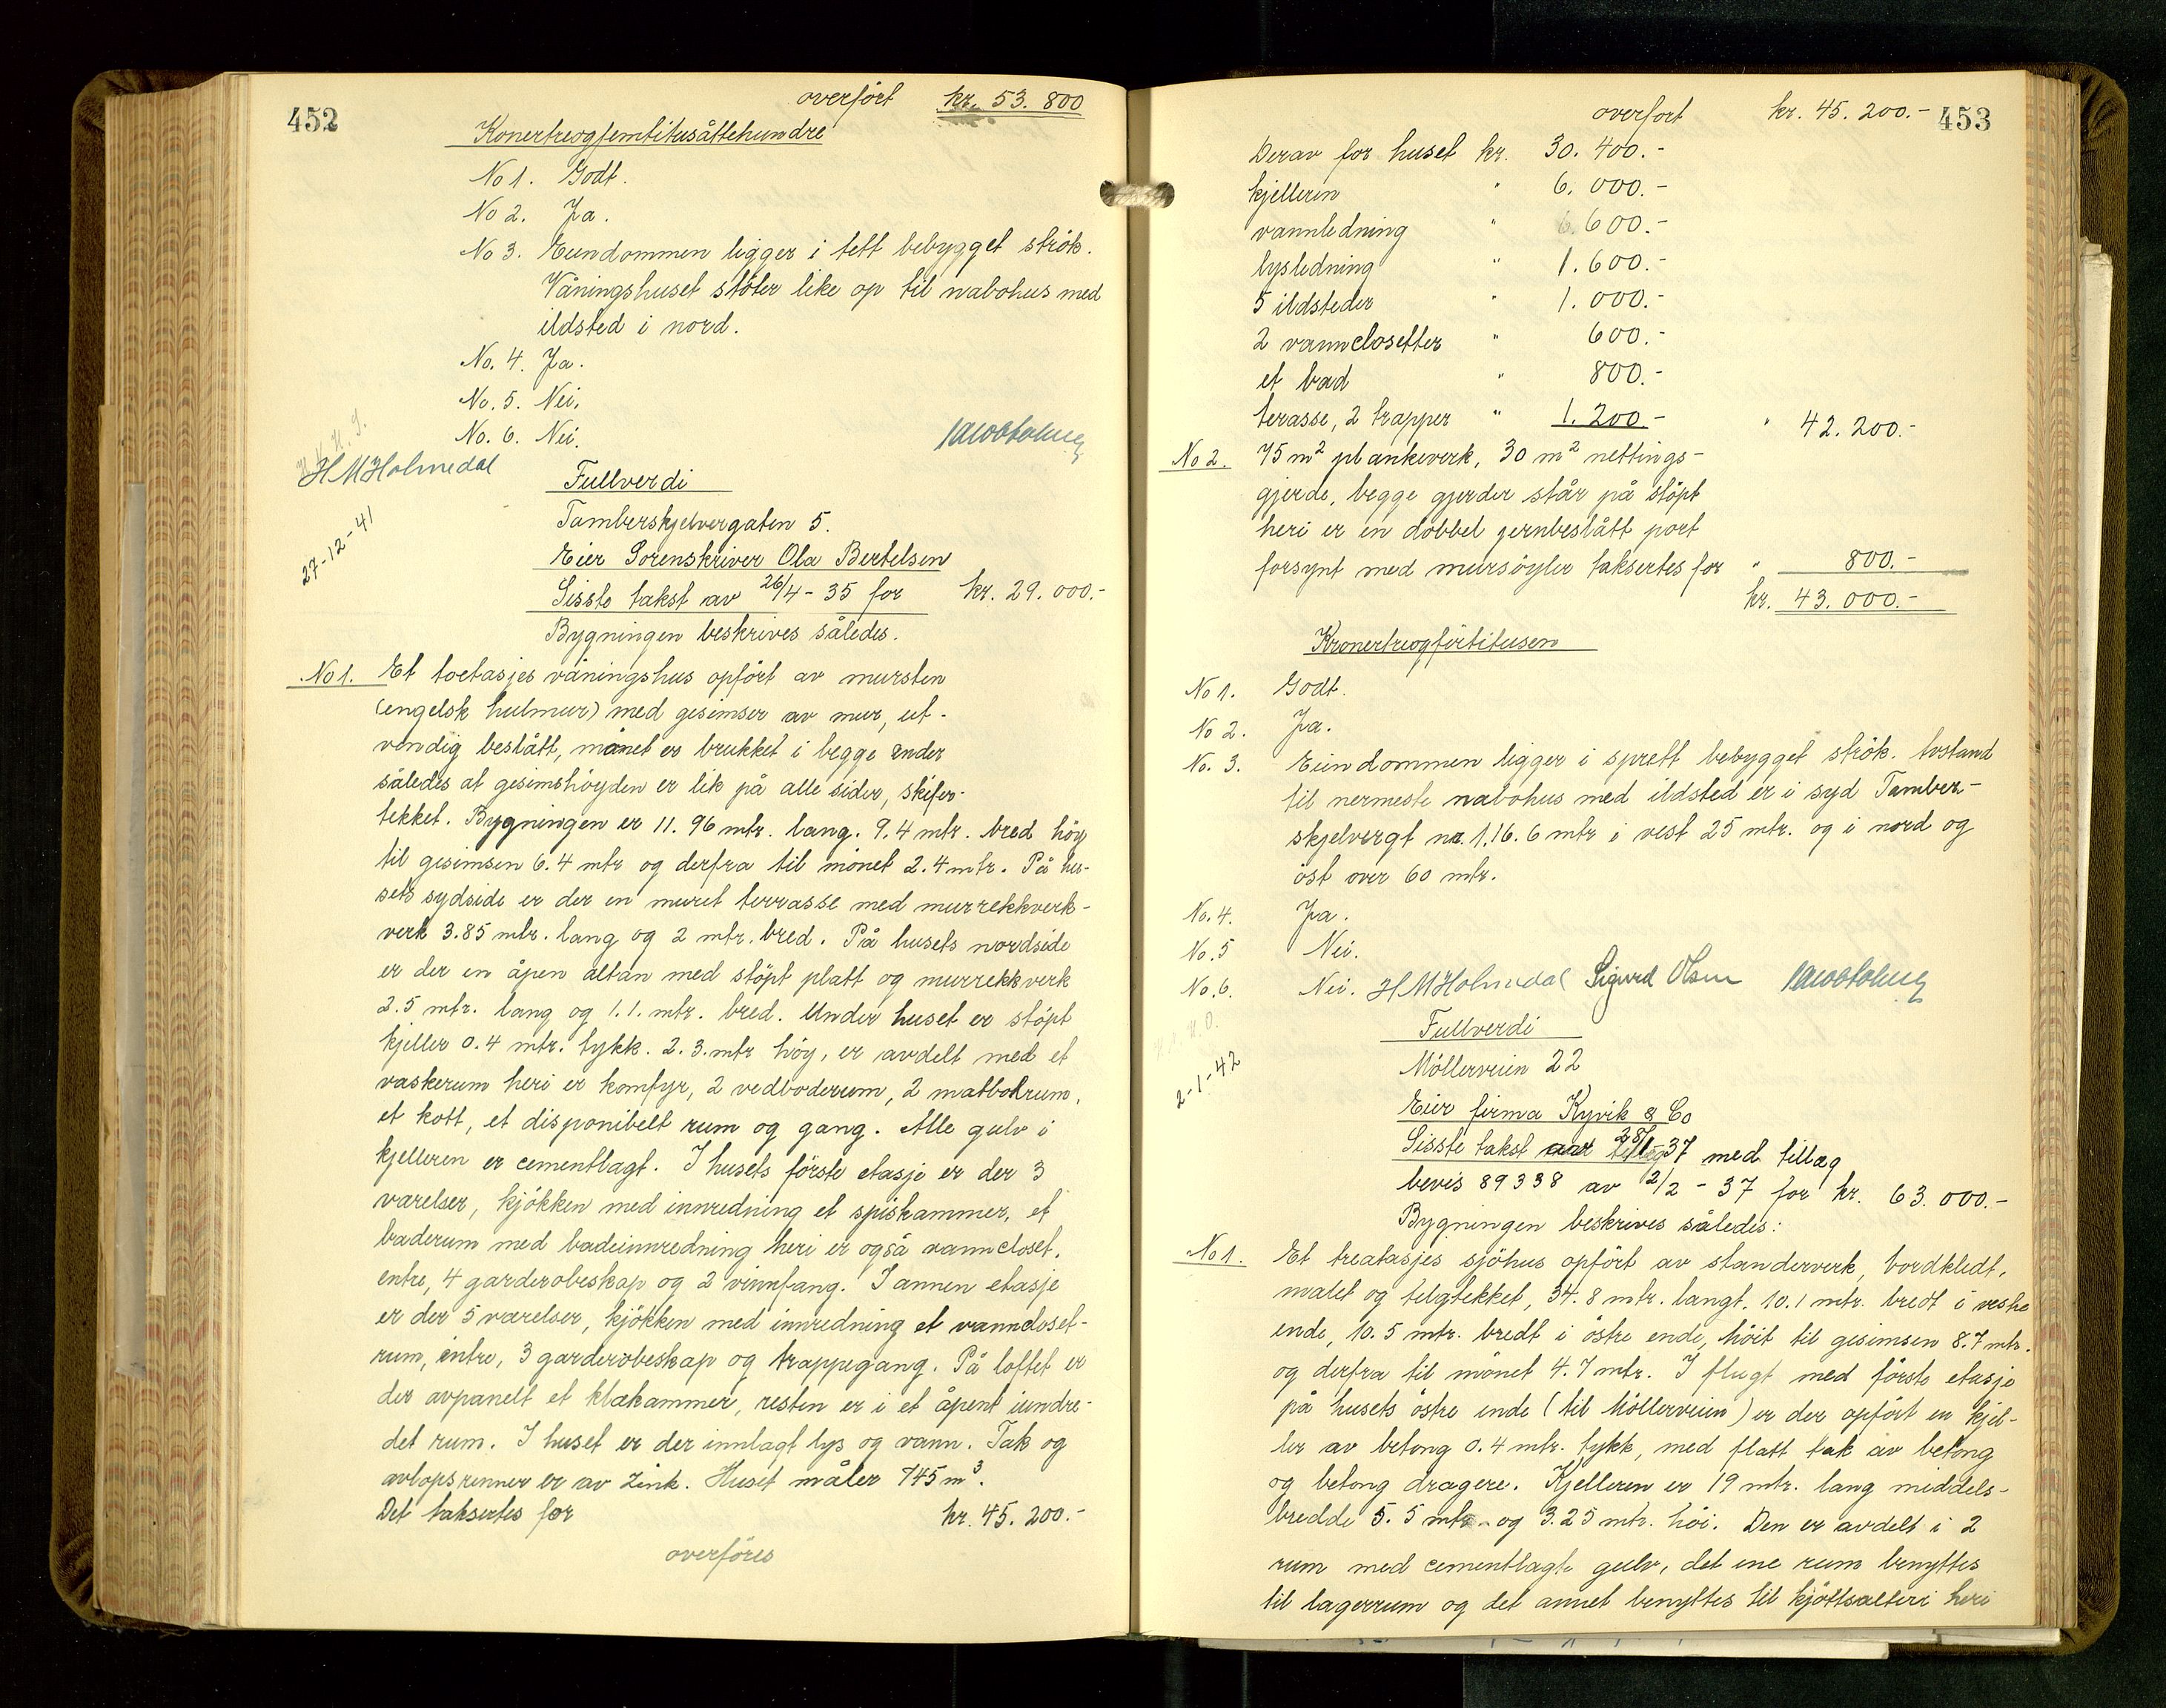 452
overført kr. 53.800
Konertreogfemtitusåttehundre
No 1. Godt.
No 2. Ja.
No 3. Eiendommen ligger i tett bebygget strök.
Våningshuset stöter like op til nabohus med
ildsted i nord.
No. 4. Ja.
No. 5. Nei.
No. 6. Nei.
H M Holmedal
27-12-41
Fullverdi
Tamberskjelvergaten 5.
Eier Sorenskriver Ola Bertelsen
Sisste takst av 26/4-35 for kr. 29.000.-
Bygningen beskrives således.
No 1. Et toetasjes våningshus opfört av mursten
(engelsk hulmur) med gesimser av mur, ut-
vendig beslått, mönet er brukket i begge ender
således at gesimshöyden er lik på alle sider, skifer-
tekket. Bygningen er 11.96 mtr. lang. 9.4 mtr. bred höy
til gesimsen 6.4 mtr og derfra til mönet 2.4 mtr. På hu-
sets sydside er der en muret terrasse med murrekkverk-
verk 3.85 mtr. lang og 2 mtr. bred. På husets nordside
er der en åpen altan med stöpt platt og murrekkverk
2.5 mtr. lang og 1.1. mtr. bred. Under huset er stöpt
kjeller 0.4 mtr. tykk. 2.3. mtr höy, er avdelt med et
vaskerum heri er komfyr, 2 vedboderum, 2 matbodrum,
et kott, et disponibelt rum og gang. Alle gulv i
kjelleren er cementlagt. I husets förste etasje er der 3
værelser, kjökken med innredning et spiskammer, et
baderum med badeinnredning heri er også vanncloset,
entre, 4 garderobeskap og 2 vinnfang. I annen etasje
er der 5 værelser, kjökken med innredning et vanncloset-
rum, entre, 3 garderobeskap og trappegang. På loftet er
der avpanelt et klækammer, resten er i et åpent iundre-
det rum. I huset er der innlagt lys og vann. Tak og
avlopsrenner er av zink. Huset måler 745 m³.
Det taksertes for kr. 45.200.-
overföres
453
overfort kr. 45.200.-
Derav for huset kr. 30.400.-
kjelleren " 6.000.-
vannledning " 600.-
lysledning " 1.600.-
5 ildsteder " 1.000.-
2 vannclosetter " 600.-
et bad " 800.-
terasse, 2 trapper " 1.200.- " 42.200.-
No 2. 75 m² plankeverk, 30 m² nettings-
gjerde, begge gjerder står på stöpt
heri er en dobbel jernbeslått port
forsynt med mursöyler taksertes for " 800.-
kr. 43.000.-
Kronertreogförtitusen
No 1. Godt.
No 2. Ja.
No. 3. Eiendommen ligger i sprett bebygget strök. Avstand
til nermeste nabohus med ildsted er i syd Tamber-
skjelvergt nr. 1, 16.6 mtr i vest 25 mtr. og i nord og
öst over 60 mtr.
No. 4. Ja.
No. 5 Nei.
No. 6. Nei. H M Holmedal Sigurd Olsen
2-1-42
Fullverdi
Möllerveien 22
Eier firma Kyvik & Co
Sisste takst 28/1-37 med tillæg
bevis 89338 av 2/2-37 for kr. 63.000.-
Bygningen beskrives således:
No 1. Et treatasjes sjöhus opfört av standerverk, bordkledt,
malet og telgtekket, 34.8 mtr. langt, 10.1 mtr. bredt i vestre
ende, 10.5 mtr. bredt i östre ende, höit til gesimsen 8.7 mtr.
og derfra til mönet 4.7 mtr. I flugt med förste etasje
på husets östre ende (til Möllerveien) er der opfört en kjel-
ler av betong 0.4 mtr. tykk, med flatt tak av betong
og betong dragere. Kjelleren er 19 mtr. lang middels-
bredde 5.5 mtr. og 3.25 mtr. höi. Den er avdelt i 2
rum med cementlagte gulv, det ene rum benyttes
til lagerrum og det annet benyttes til kjöttsalteri heri